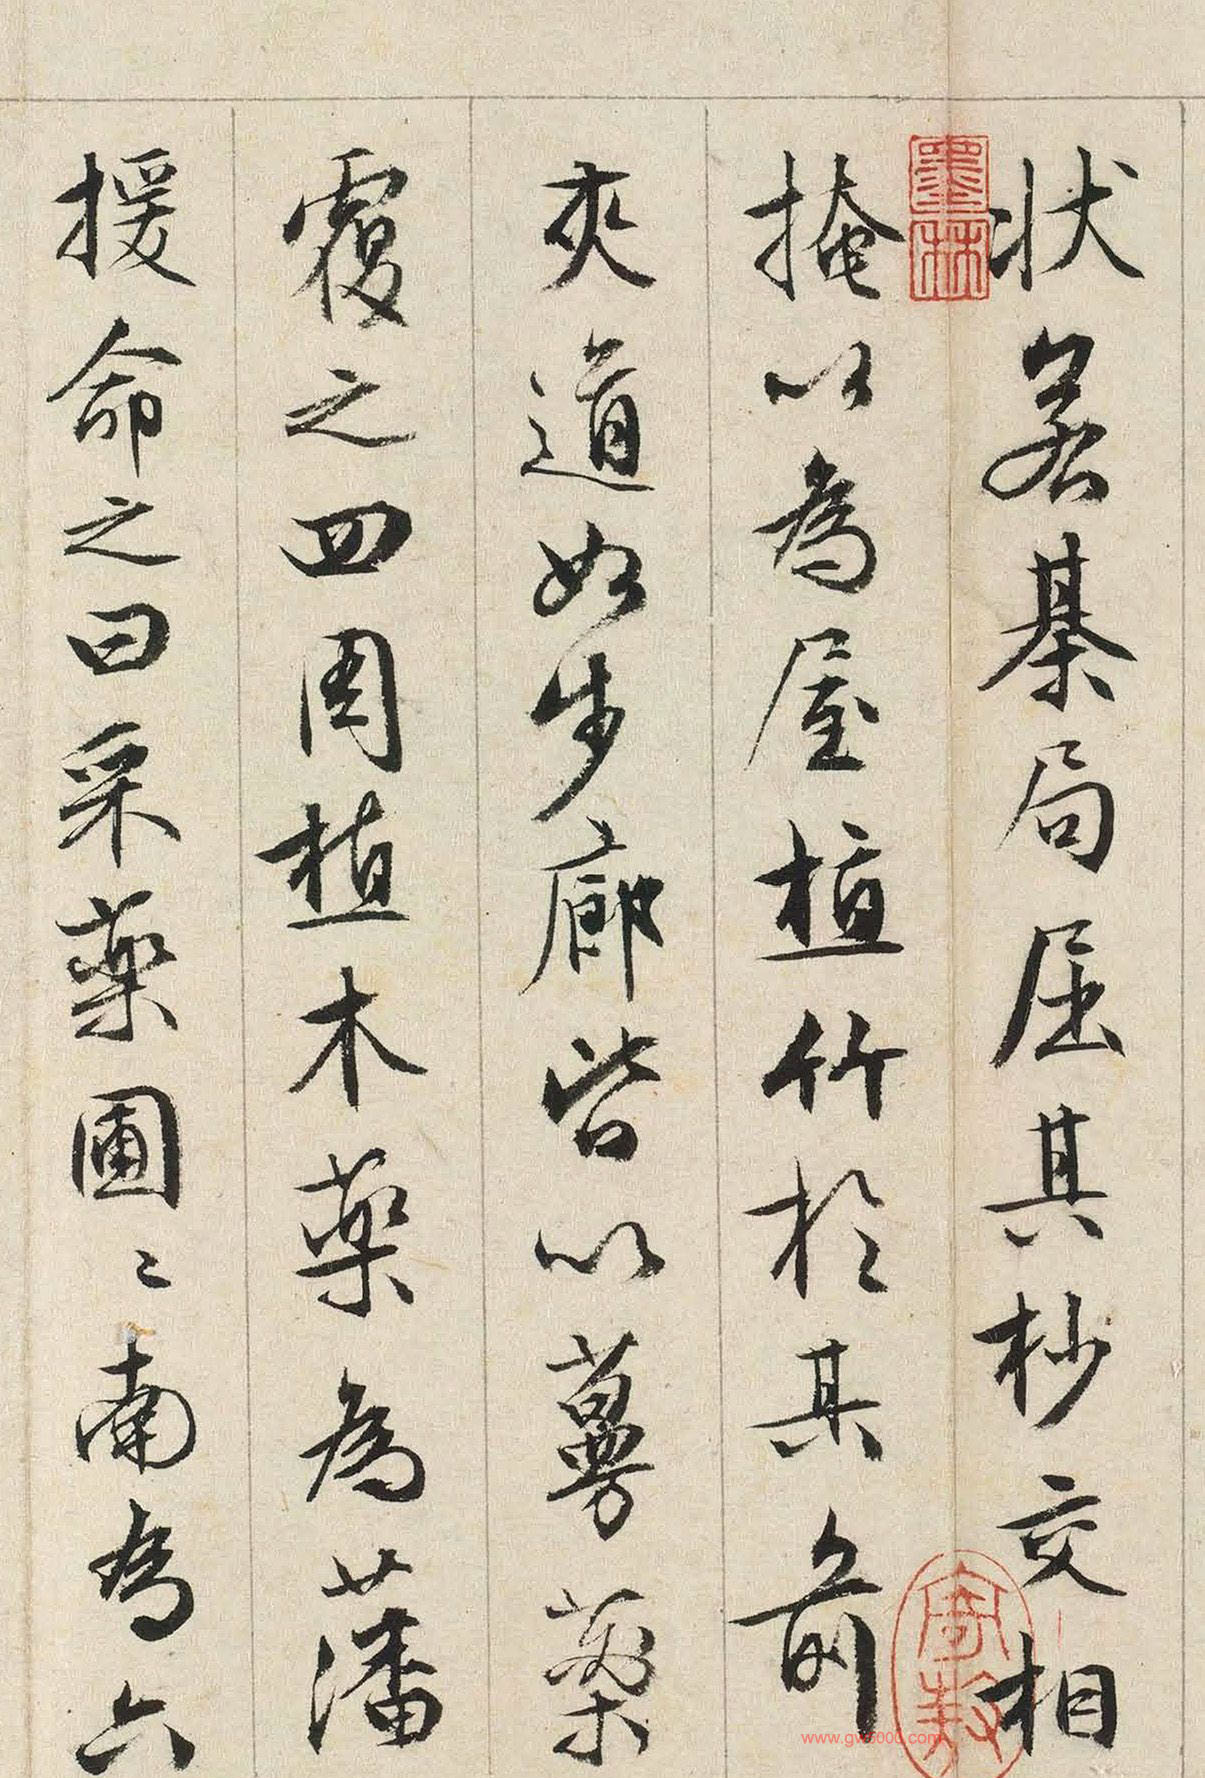 状若棊局屈其杪交相
掩以為屋植竹於其前
夾道如步廊皆以蔓藥
覆之四周植木藥為藩
援命之曰采藥圃〻南為六
墨林
www.gw5000.com